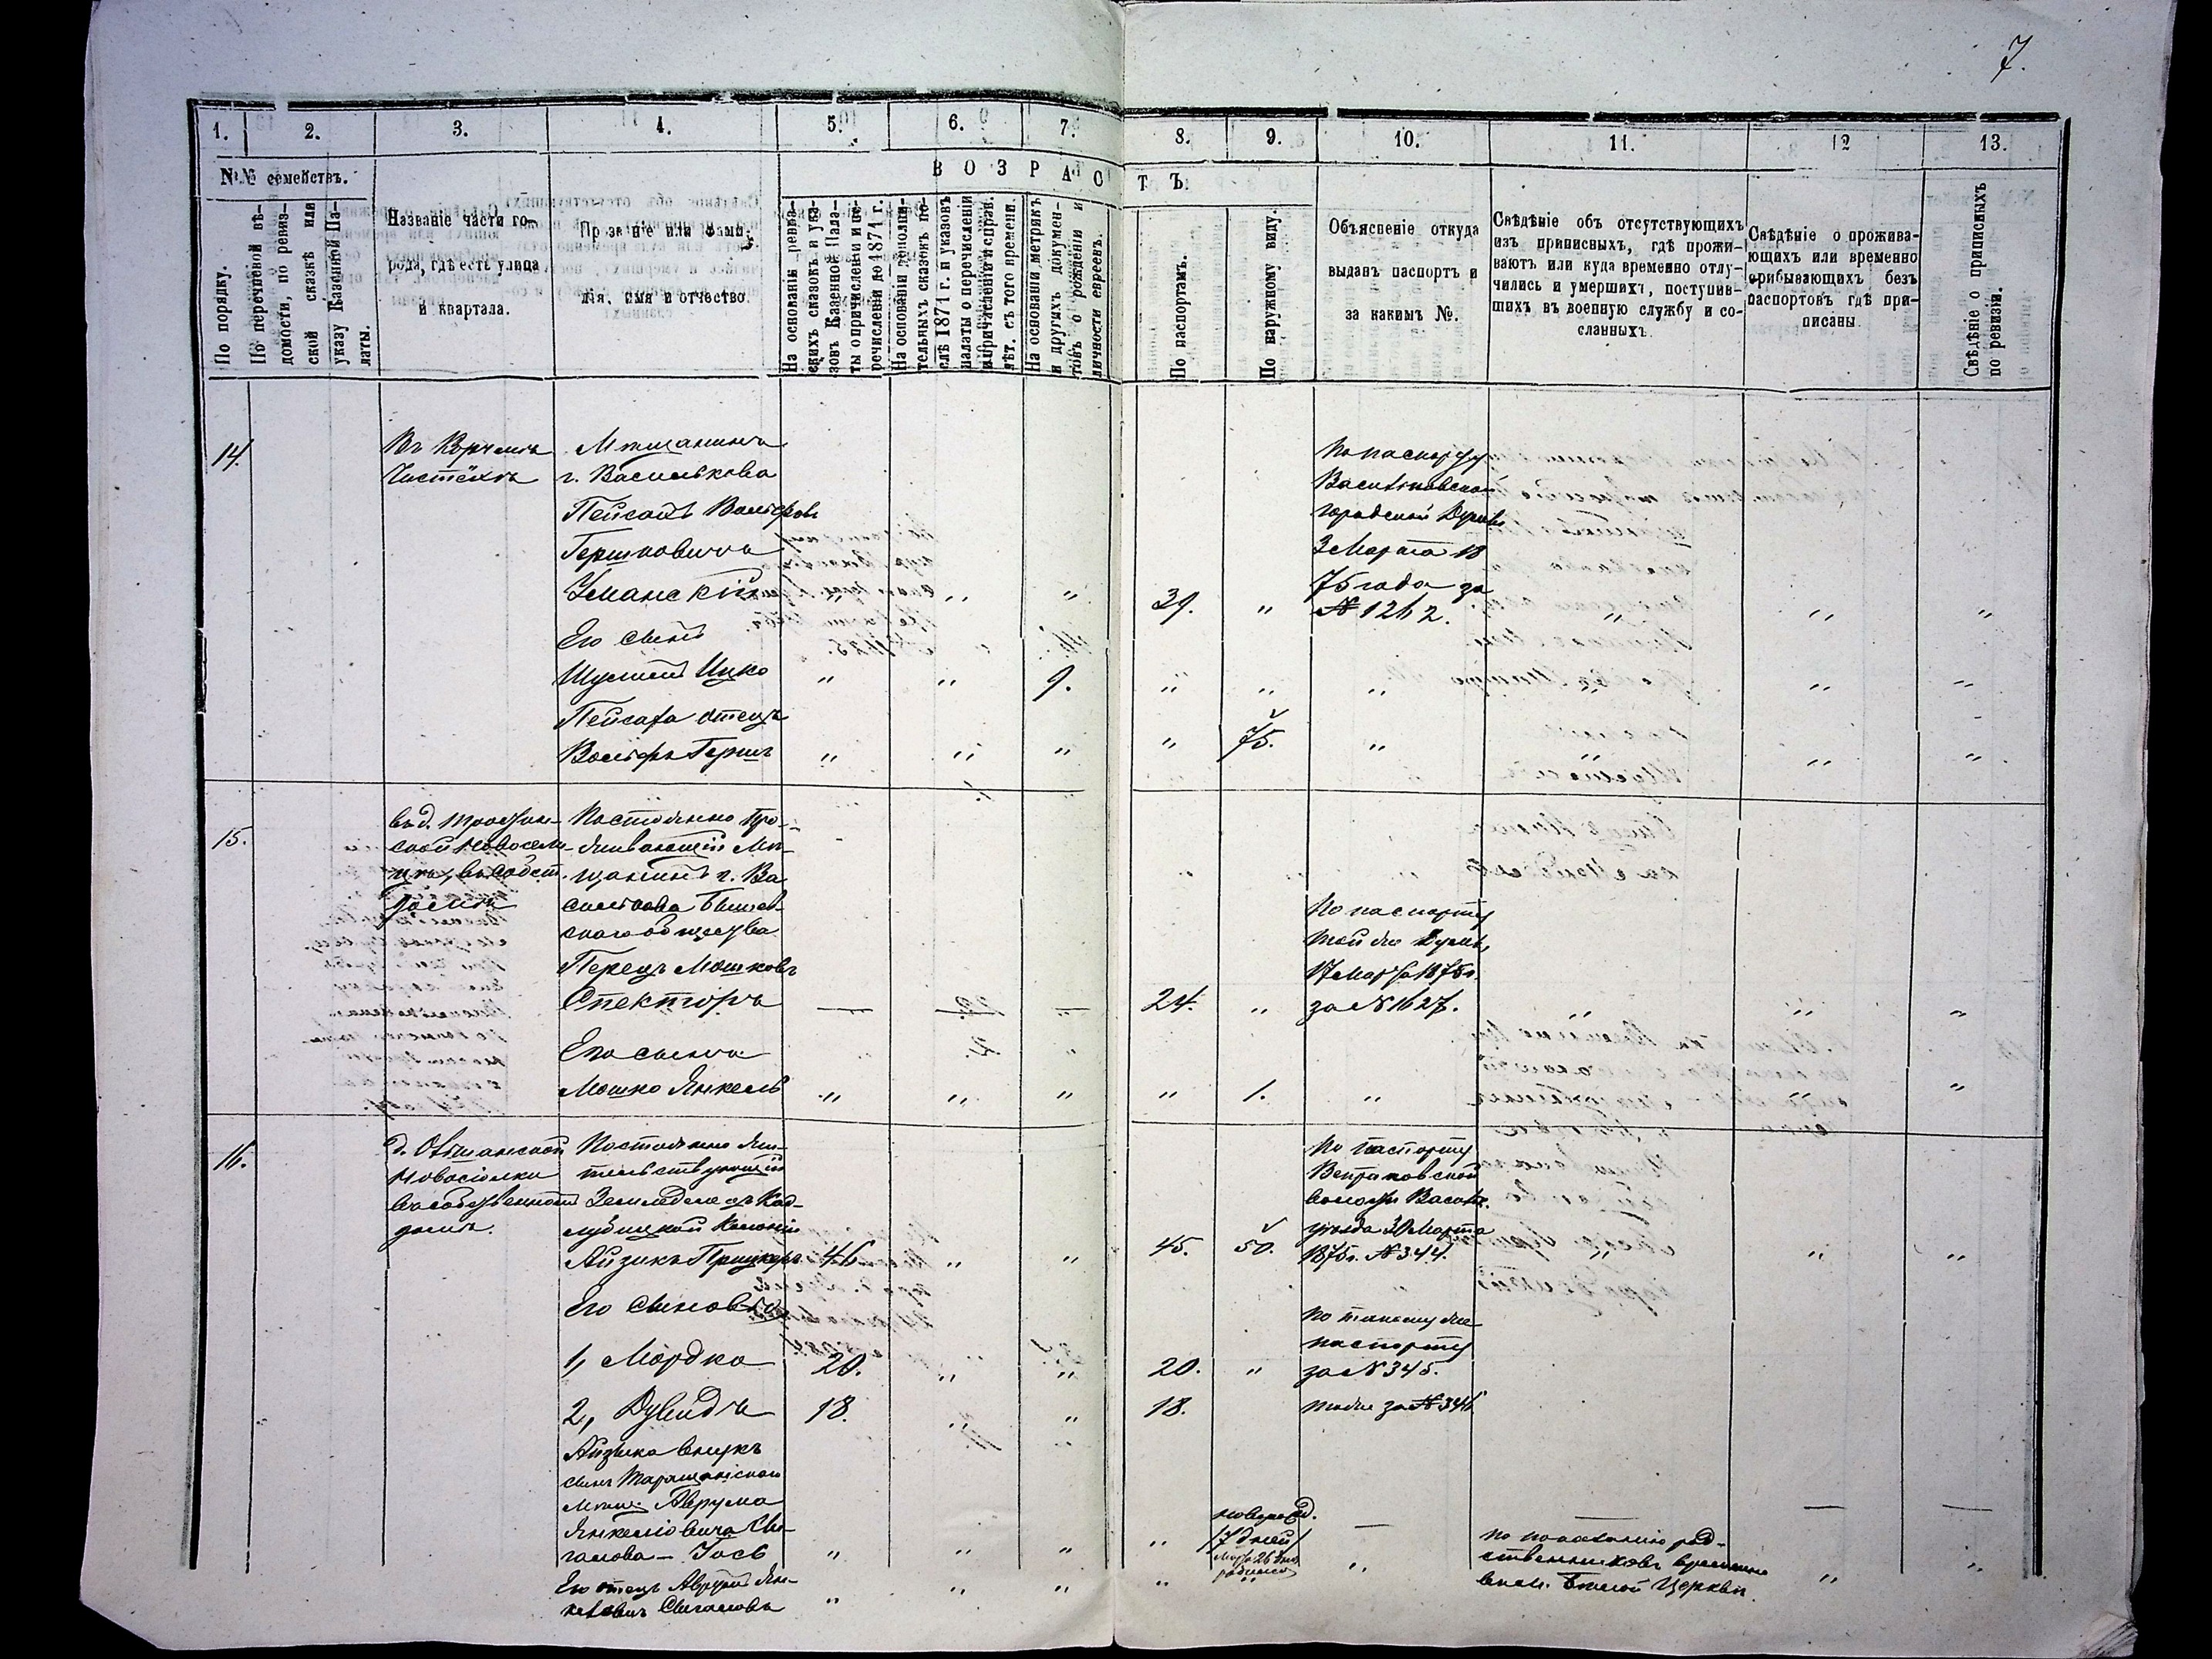 7.
1.
2.
3.
4.
5.
6.
7.
8.
9.
10.
11.
12
13.
№№ семействъ.
По порядку.
По перечневой вѣ-
домости, по ревиз-
ской сказкѣ или
указу Казенной Па-
латы.
Названіе части го-
рода, гдѣ есть улица
и квартала.
Прозваніе или фами-
лія, имя и отчество.
ВОЗРАСТЪ.
На основаніи ревиз-
скихъ сказокъ и ука-
зовъ Казенной Пала-
ты о причисленіи и пе-
речисленіи до 1871 г.
На основаніи дополни-
тельныхъ сказокъ по-
слѣ 1871 г. и указовъ
палаты о перечисленіи
и причисленіи и справ.
лѣт. съ того времени.
На основаніи метрикъ
и другихъ докумен-
товъ о рожденіи и
личности евреевъ.
По паспортамъ.
По наружному виду.
Объясненіе откуда
выданъ паспортъ и
за какимъ №.
Свѣдѣніе объ отсутствующихъ
изъ приписныхъ, гдѣ прожи-
ваютъ или куда временно отлу-
чились и умершихъ, поступив-
шихъ въ военную службу и со-
сланныхъ.
Свѣдѣніе о прожива-
ющихъ или временно
прибывающихъ безъ
паспортовъ гдѣ при-
писаны.
Свѣдѣніе о приписныхъ
по ревизіи.
14.
Въ Корчмѣ
Мѣщанинъ
г. Василькова
Пейсахъ Вольфов
Гершковичъ
Уманскій
" " "
39. "
По паспорту
Васильковской
городской Думы
3 Марта 18
75 года за
№ 1262.
" " "
Его сынъ
Шулимъ Ицко
" " 9. " " " " "
Пейсаха отецъ
Вольфъ Гершъ
" " " " 75. " " " "
15.
въ собст.
Постоянно про-
живающій Мѣ-
щанинъ г. Ва
силькова
скаго общества
Перецъ Мошковъ
Спекторъ
24. "
По паспорту
той же Думы,
17 Марта 1875 г.
за № 1627.
" " "
Его сынъ
Мошко Янкель
" " " " 1. " " "
16.
д.
Новосіолки
въ собственномъ
домѣ.
Постоянно жи-
тельствующій
Земледелецъ Код-
лубицкой Колоніи
Айзикъ Прицкеръ
46 " "
45. 50.
По паспорту
волости Васил.
уѣзда 30 Марта
1875 г. № 344.
" " "
Его сыновья
1, Мордко
20. " "
20. "
по такому же
паспорту
за № 345.
2, Дувидъ
18. " "
18.
тоже за № 346
Айзика внукъ
сынъ Таращанскаго
мѣщ. Аврума
Янкеліовича Си-
галова – Іось
" " " "
новорожд.
17 дней
по показанію род-
ственниковъ временно
Бѣлой Церкви.
Его отецъ Аврумъ Ян-
келевичъ Сигаловъ
" " " " " " " "